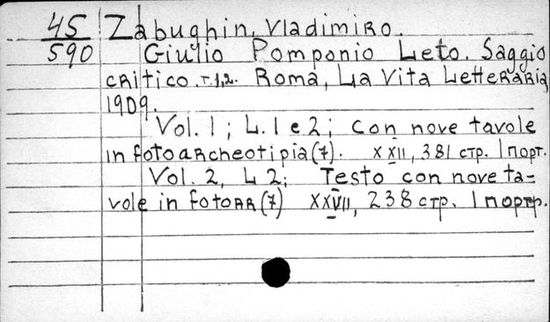 45 Zabughin, Vladimiro.
590 Giulio Pomponio Leto. Saggio
critico. т.1,2. Roma, La Vita Letteraria,
1909.
Vol. 1; L. 1 e 2; con nove tavole
in fotoarcheotipia (7). XXII, 381 стр. 1 порт.
Vol. 2, L 2; Testo con nove ta-
vole in fotoar (7) XXVII, 238 стр. 1 портр.